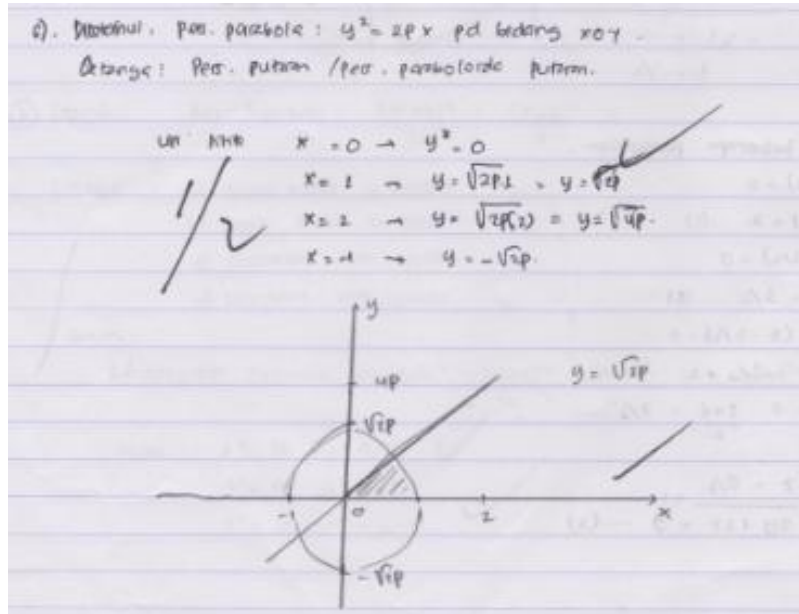 c). Diketahui. Pers. parabola : y² = 2px pd bidang xoy.
Ditanya : Pers. putaran / pers. paraboloida putaran.
x = 0 → y² = 0
x = 1 → y = √2p.1 = y = √2p
x = 2 → y = √2p(2) = y = √4p.
x = -1 → y = -√2p.
1/2
y
4p
y = √2p
√2p
-1 0 1 2 x
-√2p